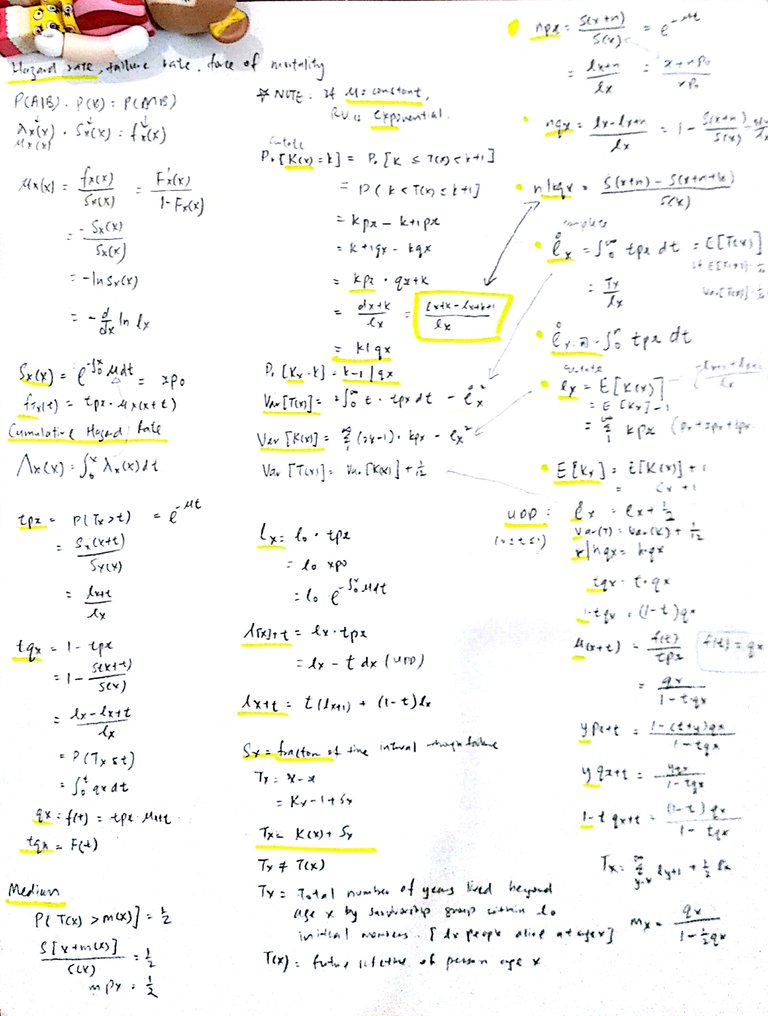 Hazard rate, failure rate, force of mortality
P(A|B) · P(B) = P(A∩B)
λx(x) · Sx(x) = fx(x)
μx(x)
μx(x) = fx(x)/Sx(x) = F'x(x)/1-Fx(x)
= -S'x(x)/Sx(x)
= -ln Sx(x)
= -d/dx ln lx
Sx(x) = e^-∫₀ˣ μdt = xp0
fTx(t) = tpx · μx(x+t)
Cumulative Hazard Rate
Λx(x) = ∫₀ˣ λx(x)dt
tpx = P(Tx>t) = e^-μt
= Sx(x+t)/Sx(x)
= lx+t/lx
tqx = 1 - tpx
= 1 - S(x+t)/S(x)
= lx-lx+t/lx
= P(Tx≤t)
= ∫₀ᵗ qx dt
qx = f(t) = tpx · μx+t
tqx = F(t)
Median
P[T(x) > m(x)] = 1/2
S[x+m(x)]/S(x) = 1/2
mpx = 1/2
☆ NOTE: if μ = constant,
RV is Exponential.
curtate
Pr[K(x)=k] = Pr[K ≤ T(x) < k+1]
= P(K < T(x) ≤ k+1]
= kpx - k+1px
= k+1qx - kqx
= kpx · qx+k
= dx+k/lx = lx+k-lx+k+1/lx
= k|qx
Pr[Kx=k] = k-1|qx
Var[T(x)] = 2∫₀^∞ t · tpx dt - e̊x²
Var[K(x)] = Σ₁^∞ (2k-1) · kpx - ex²
Var[T(x)] = Var[K(x)] + 1/12
lx = l0 · tpx
= l0 xp0
= l0 e^-∫₀ˣ μdt
l[x]+t = lx · tpx
= lx - t dx (UDD)
lx+t = t(lx+1) + (1-t)lx
Sx = fraction of time interval through failure
= Kx-1+Sx
Tx = K(x) + Sx
Tx ≠ T(x)
Tx = Total number of years lived beyond
age x by survivorship group within l0
initial members. [lx people alive at age x]
T(x) = future lifetime of person age x
npx = S(x+n)/S(x) = e^-μt
= lx+n/lx = x+np0/xp0
nqx = lx-lx+n/lx = 1 - S(x+n)/S(x)
n|kqx = S(x+n) - S(x+n+k)/S(x)
complete
e̊x = ∫₀^∞ tpx dt = E[T(x)]
= Tx/lx
e̊x:n̅| = ∫₀ⁿ tpx dt
curtate
ex = E[K(x)]
= E[Kx]-1
= Σ₁^∞ kpx
E[Kx] = E[K(x)] + 1
= ex + 1
UDD:
e̊x = ex + 1/2
Var(T) = Var(K) + 1/12
tqx = t · qx
1-tqx = (1-t)qx
μ(x+t) = f(t)/tpx
f(t) = qx
= qx/1-tqx
ypx+t = 1-(t+y)qx/1-tqx
yqx+t = yqx/1-tqx
1-tqx+t = (1-t)qx/1-tqx
mx = qx/1-½qx